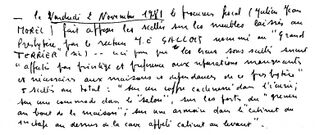 — le Vendredi 2 Novembre 1781 le procureur fiscal (Julien Jean
MOREL) fait apposer les scellés sur les meubles laissés au
Presbytère, par le recteur M.E GALLOIS nommé au "grand
TERRIER (sic) — un peu que les biens sous scellés soient
"affectés par privilège et préférence aux réparations manquantes
et nécessaires aux maisons et dépendances de ce presbytère"
5 scellés au total : "sur un coffre cadenassé dans l'écurie;
sur une commode dans le "salon", sur les portes du "grenier
au bout de la maison"; sur une armoire dans le cabinet
au dessus de la cave appelé cabinet au levant".